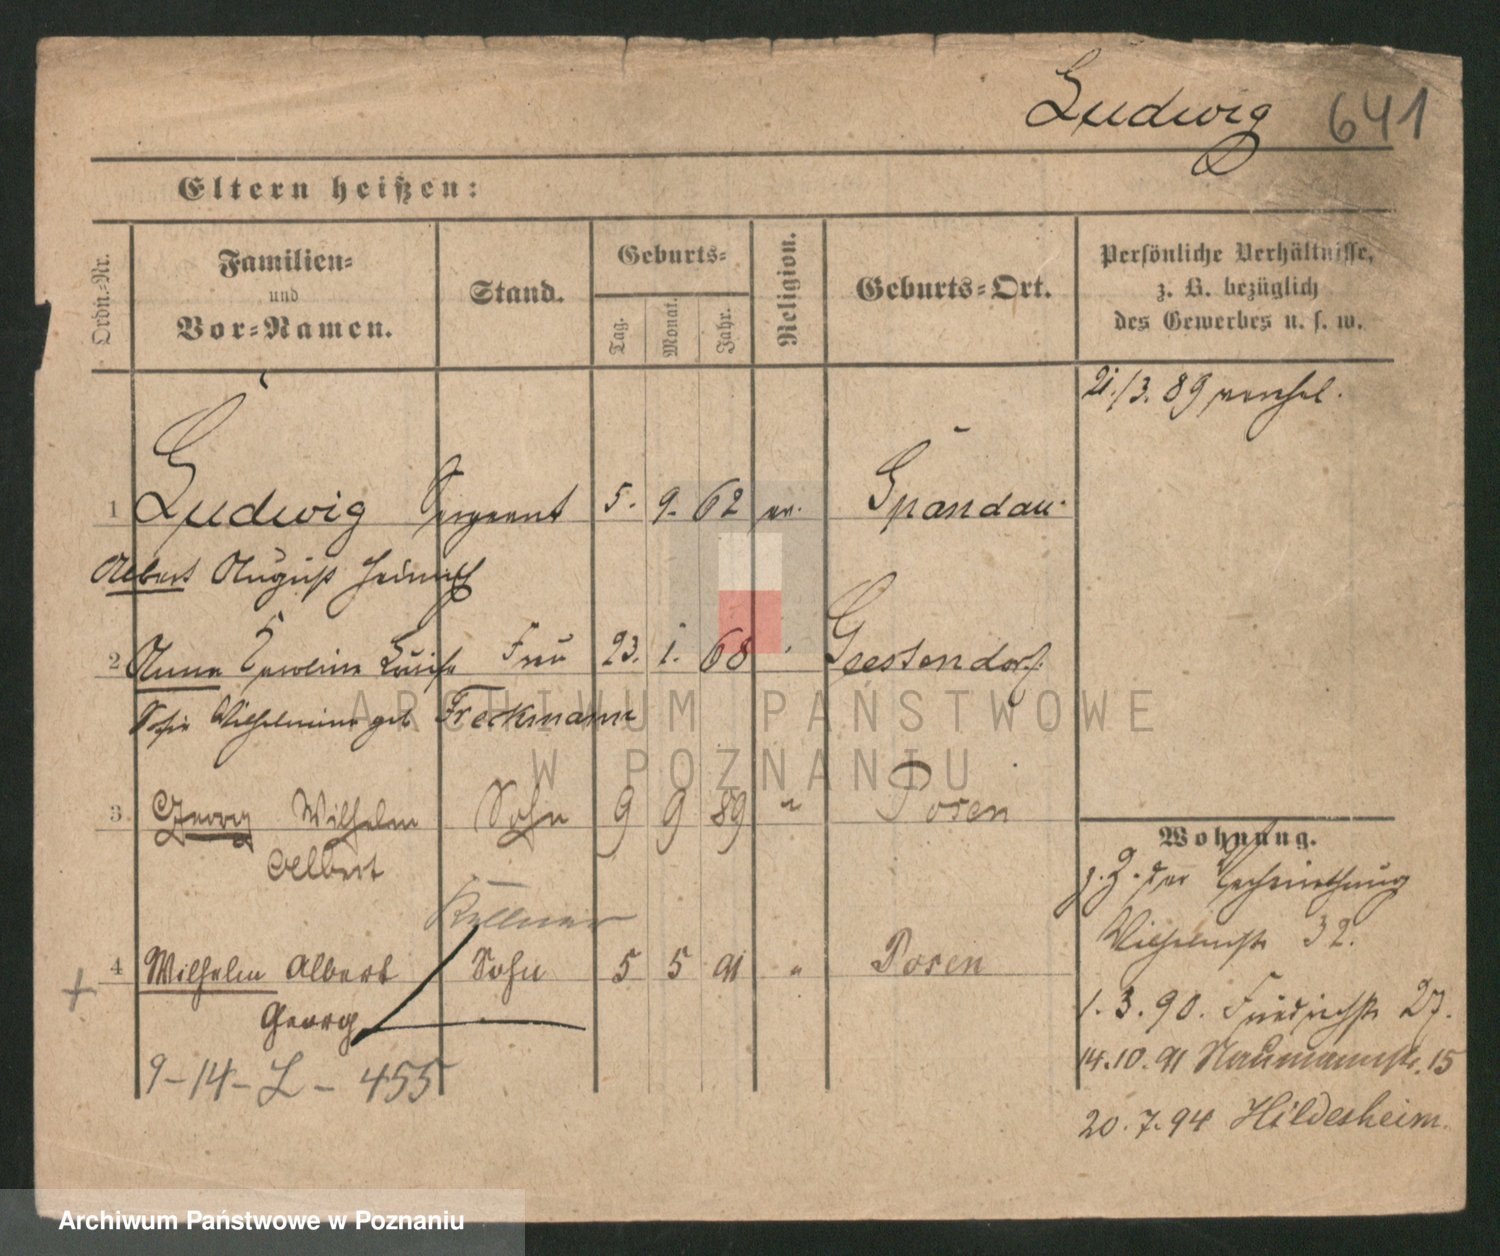 Ludwig 641
Eltern heißen:
Ordn.-Nr.
Familien-
und
Vor-Namen.
Stand.
Geburts-
Tag.
Monat.
Jahr.
Religion.
Geburts-Ort.
Persönliche Verhältnisse,
z. B. bezüglich
des Gewerbes u. s. w.
21./3. 89
1 Ludwig Sergeant 5. 9. 62 ev. Spandau
Albert August Heinrich
2 Anna Caroline Luise Frau 23. 1. 68 " Geestendorf.
Sofie Wilhelmine geb Freckmann
3 Georg Wilhelm Sohn 9 9 89 " Posen
Albert
Kellner
4 Wilhelm Albert Sohn 5 5 91 " Posen
Georg
9-14-L-455
Wohnung.
z. Z. der Verheirathung
Wilhelmstr 32.
1. 3. 90. Friedrichstr 27.
14.10.91 Naumannstr. 15
20.7.94 Hildesheim.
ARCHIWUM PAŃSTWOWE
W POZNANIU
Archiwum Państwowe w Poznaniu